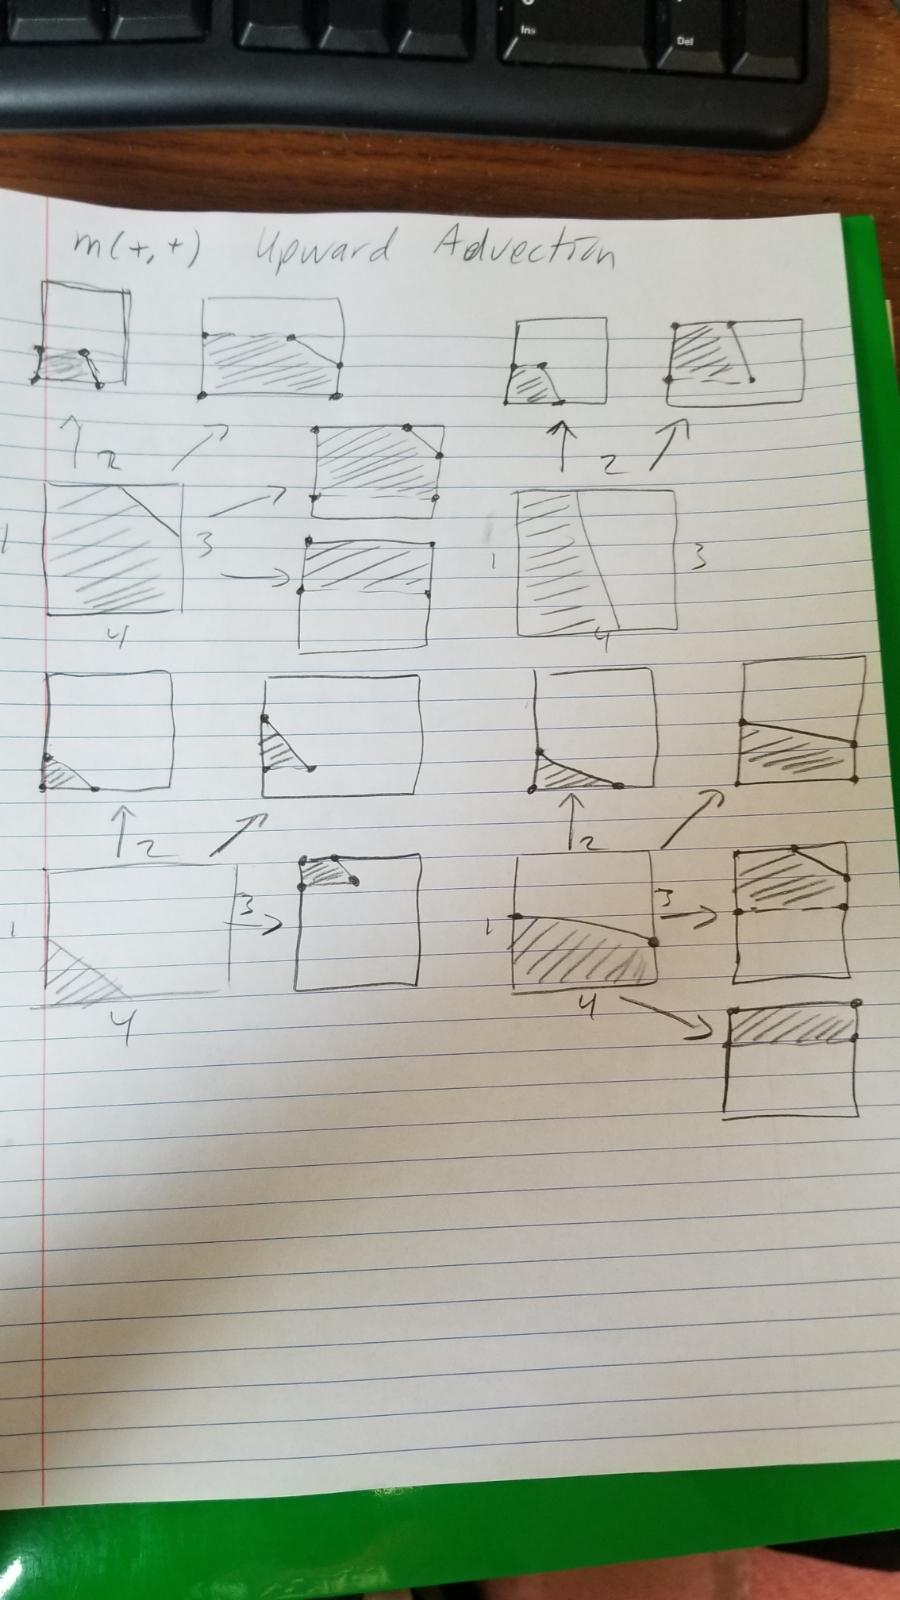 Ins
Del
m(+,+) Upward Advection
2
2
1
3
4
1
3
4
2
2
1
3
4
1
3
4